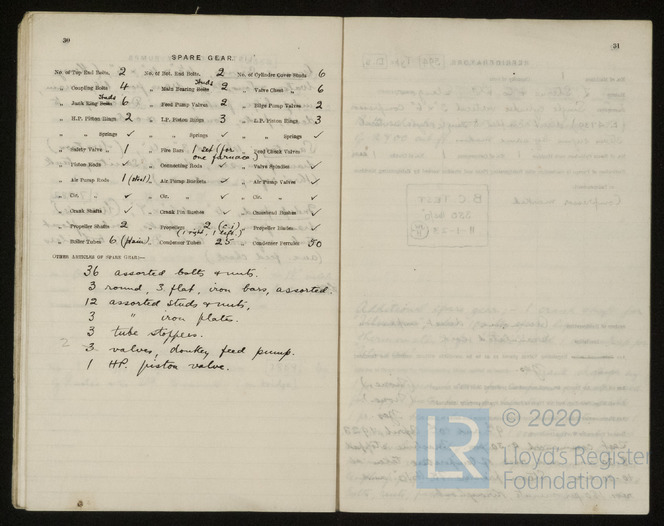 30
SPARE GEAR.
No. of Top End Bolts, 2 No. of Bot. End Bolts, 2 No. of Cylinder Cover Studs 6
„ Coupling Bolts 4 „ Main Bearing Bolts Studs 2 „ Valve Chest „ 6
„ Junk Ring Bolts Studs 6 „ Feed Pump Valves 2 „ Bilge Pump Valves 2
„ H.P. Piston Rings 2 „ I.P. Piston Rings 3 „ L.P. Piston Rings 3
„ „ Springs ✓ „ „ Springs ✓ „ „ Springs ✓
„ Safety Valve „ 1 „ Fire Bars 1 set (for one furnace) „ Feed Check Valves
„ Piston Rods ✓ „ Connecting Rods ✓ „ Valve Spindles ✓
„ Air Pump Rods 1 (steel) „ Air Pump Buckets ✓ „ Air Pump Valves ✓
„ Cir. „ ✓ „ Cir. „ ✓ „ Cir. „ ✓
„ Crank Shafts ✓ „ Crank Pin Bushes ✓ „ Crosshead Bushes ✓
„ Propeller Shafts 2 „ Propellers 2 (C.I.) (1 right, 1 left) „ Propeller Blades ✓
„ Boiler Tubes 6 (plain) „ Condenser Tubes 25 „ Condenser Ferrules 50
OTHER ARTICLES OF SPARE GEAR:—
36 assorted bolts & nuts.
3 round, 3 flat, iron bars, assorted.
12 assorted studs & nuts,
3 „ iron plates.
3 tube stoppers.
3 valves, donkey feed pump.
1 HP. piston valve.
31
LR
© 2020
Lloyd's Register
Foundation